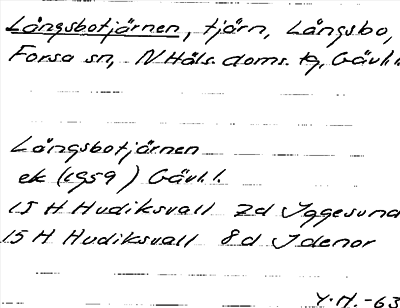 Långsbotjärnen, tjärn, Långsbo,
Forsa sn, N Häls. doms. tg, Gävl. l.
Långsbotjärnen
ek (1959) Gävl. l.
15 H Hudiksvall 7d Iggesund
15 H Hudiksvall 8d Idenor
Y.H.-63